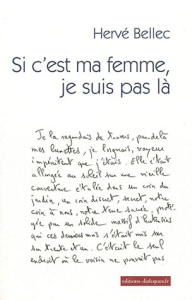 Hervé Bellec
Si c'est ma femme,
je suis pas là
Je la regardais de travers, par-delà
mes lunettes, je lorgnais, voyeur
impénitent que j'étais. Elle était
allongée au soleil sur une vieille
couverture étalée dans un coin du
jardin, un coin discret, secret, notre
coin à nous, notre terre sacrée, proté-
gée par un solide massif d'hortensias
qui ces derniers mois s'était mis sur
son trente et un. C'était le seul
endroit où le voisin ne pouvait pas
editions-dialogues.fr